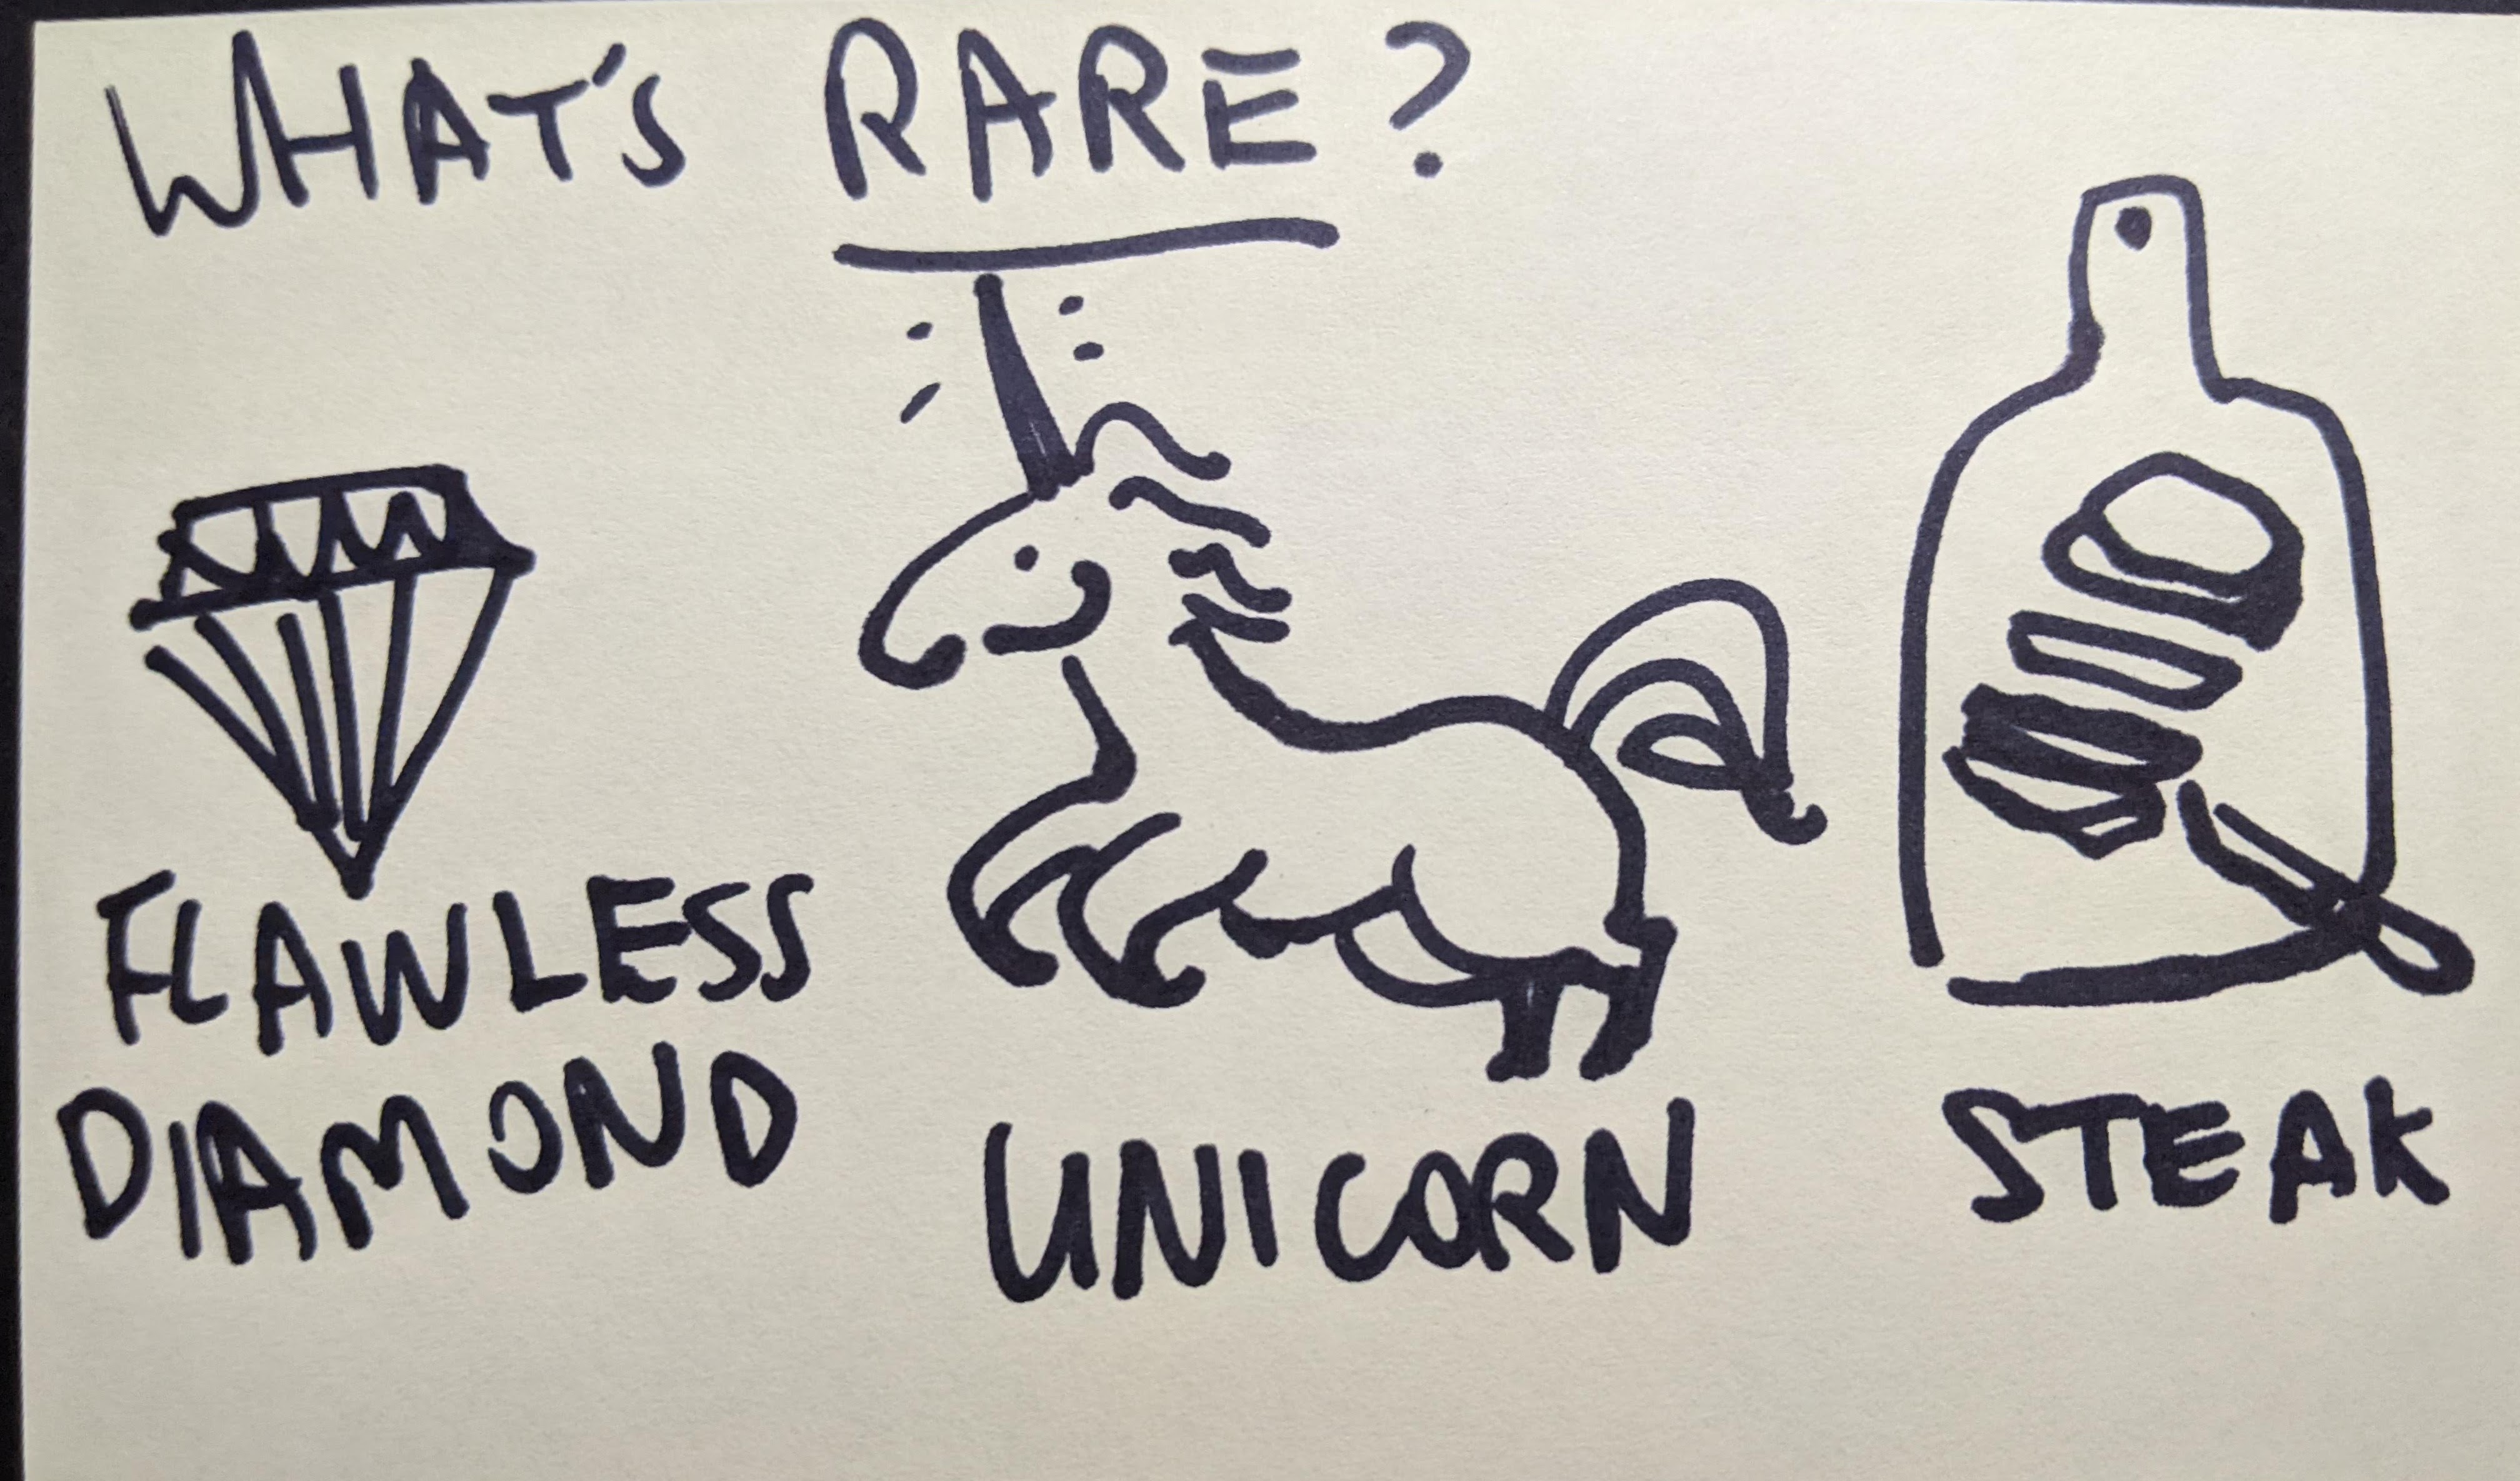 WHAT'S RARE?
FLAWLESS
DIAMOND
UNICORN
STEAK